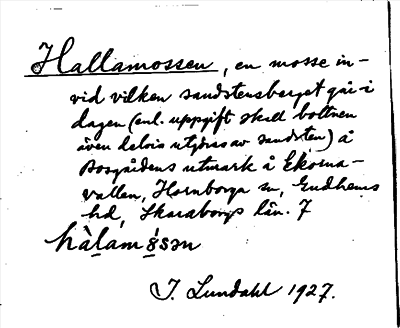 Hallamossen, en mosse in-
vid vilken sandstensberget går i
dagen (enl. uppgift skall bottnen
även delvis utgöras av sandsten) å
Bosgårdens utmark å Ekorna-
vallen, Hornborga sn, Gudhems
hd, Skaraborgs län. 7
hàlamɔ́sən
J. Lundahl 1927.